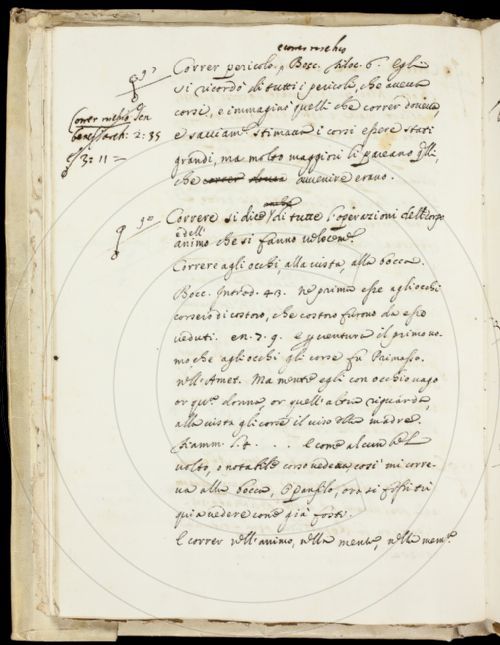 e correr rischio
Correr pericolo. Bocc. filoc. 6. Egli
si ricordò di tutti i pericoli, che aveva
corsi, e immaginò quelli che correr doveva,
e stimava i corsi essere stati
grandi, ma molto maggiori li pareano quelli,
che correr avvenire erano.
Correr rischio
2: 35
3: 11
anche
Correre si dice di tutte l'operazioni del corpo
e dell'
animo che si fanno
Correre agli occhi alla vista, alla bocca.
Bocc. Introd. 43. ne prima esse agli occhi
corsero di costoro, che costoro furono da esse
veduti. en. 7. 9. e per ventura il primo uo-
mo, che agli occhi gli corse fu Primasso.
nell'Amet. Ma mentre egli con occhio vago
or questa donna or quell'altra riguarda,
alla vista gli corse il viso della madre.
Fiamm. e come alcun bel
volto, o notabile corso vedeva così mi corre-
va alla bocca, o panfilo, ora ci fossi tu
qui a vedere come già fosti.
E correr nell'animo, nella mente, nella mem.